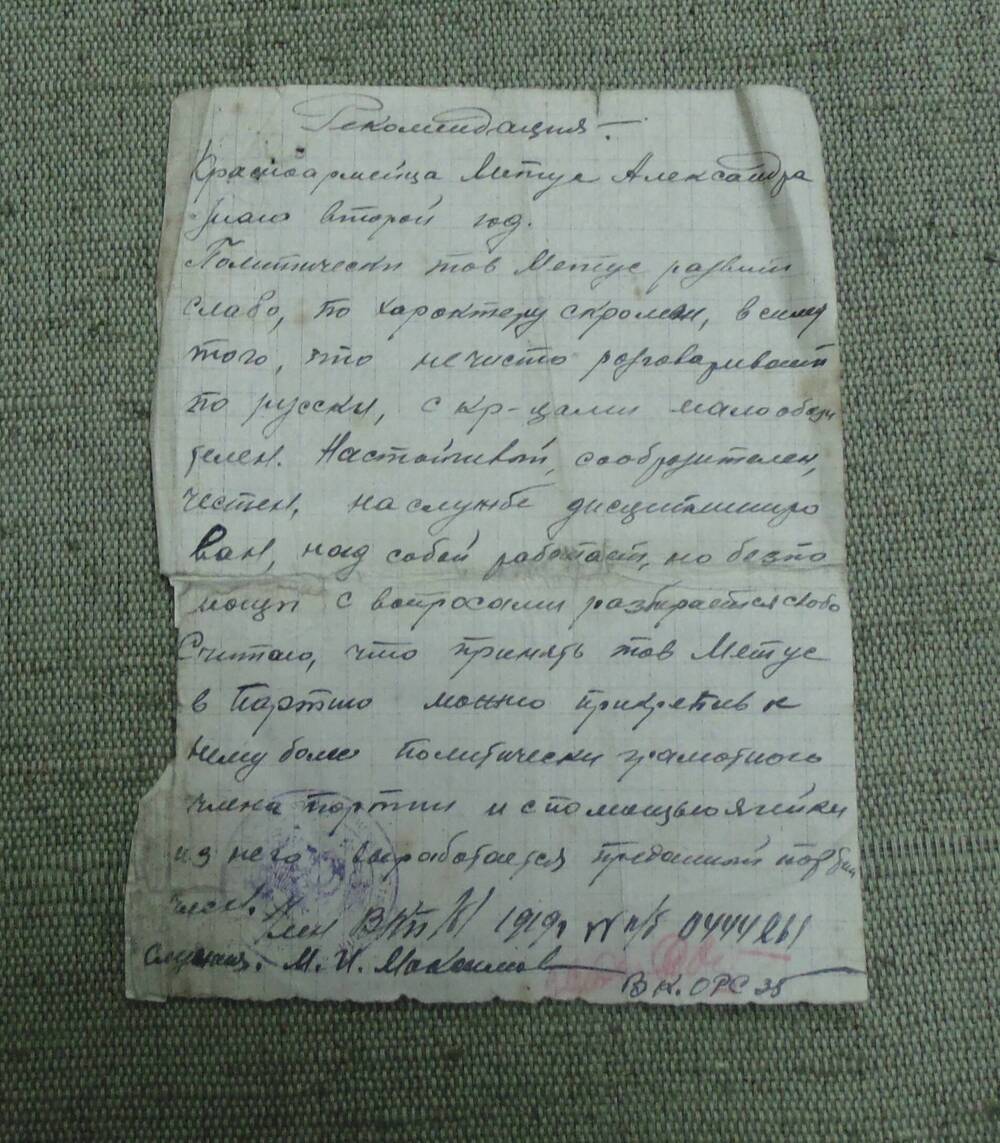 Рекомендация.
Красноармейца Метус Александра
знаю второй год.
Политически тов Метус развит
слабо, по характеру скромен, в силу
того, что нечисто разговаривает
по русски, с кр-цами малообщи
телен. Настойчивый, сообразителен,
честен, на службе дисциплиниро
ван, над собой работает, но без по
мощи с вопросами разбирается слабо
Считаю, что принять тов Метус
в партию можно прикрепив к
нему более политически грамотного
члена партии и с помощью ячейки
из него выработается преданный
член.
Член ВКП/б/ 1919г № п/б 0444261
М. И. Максимов
В К. ОРС 35